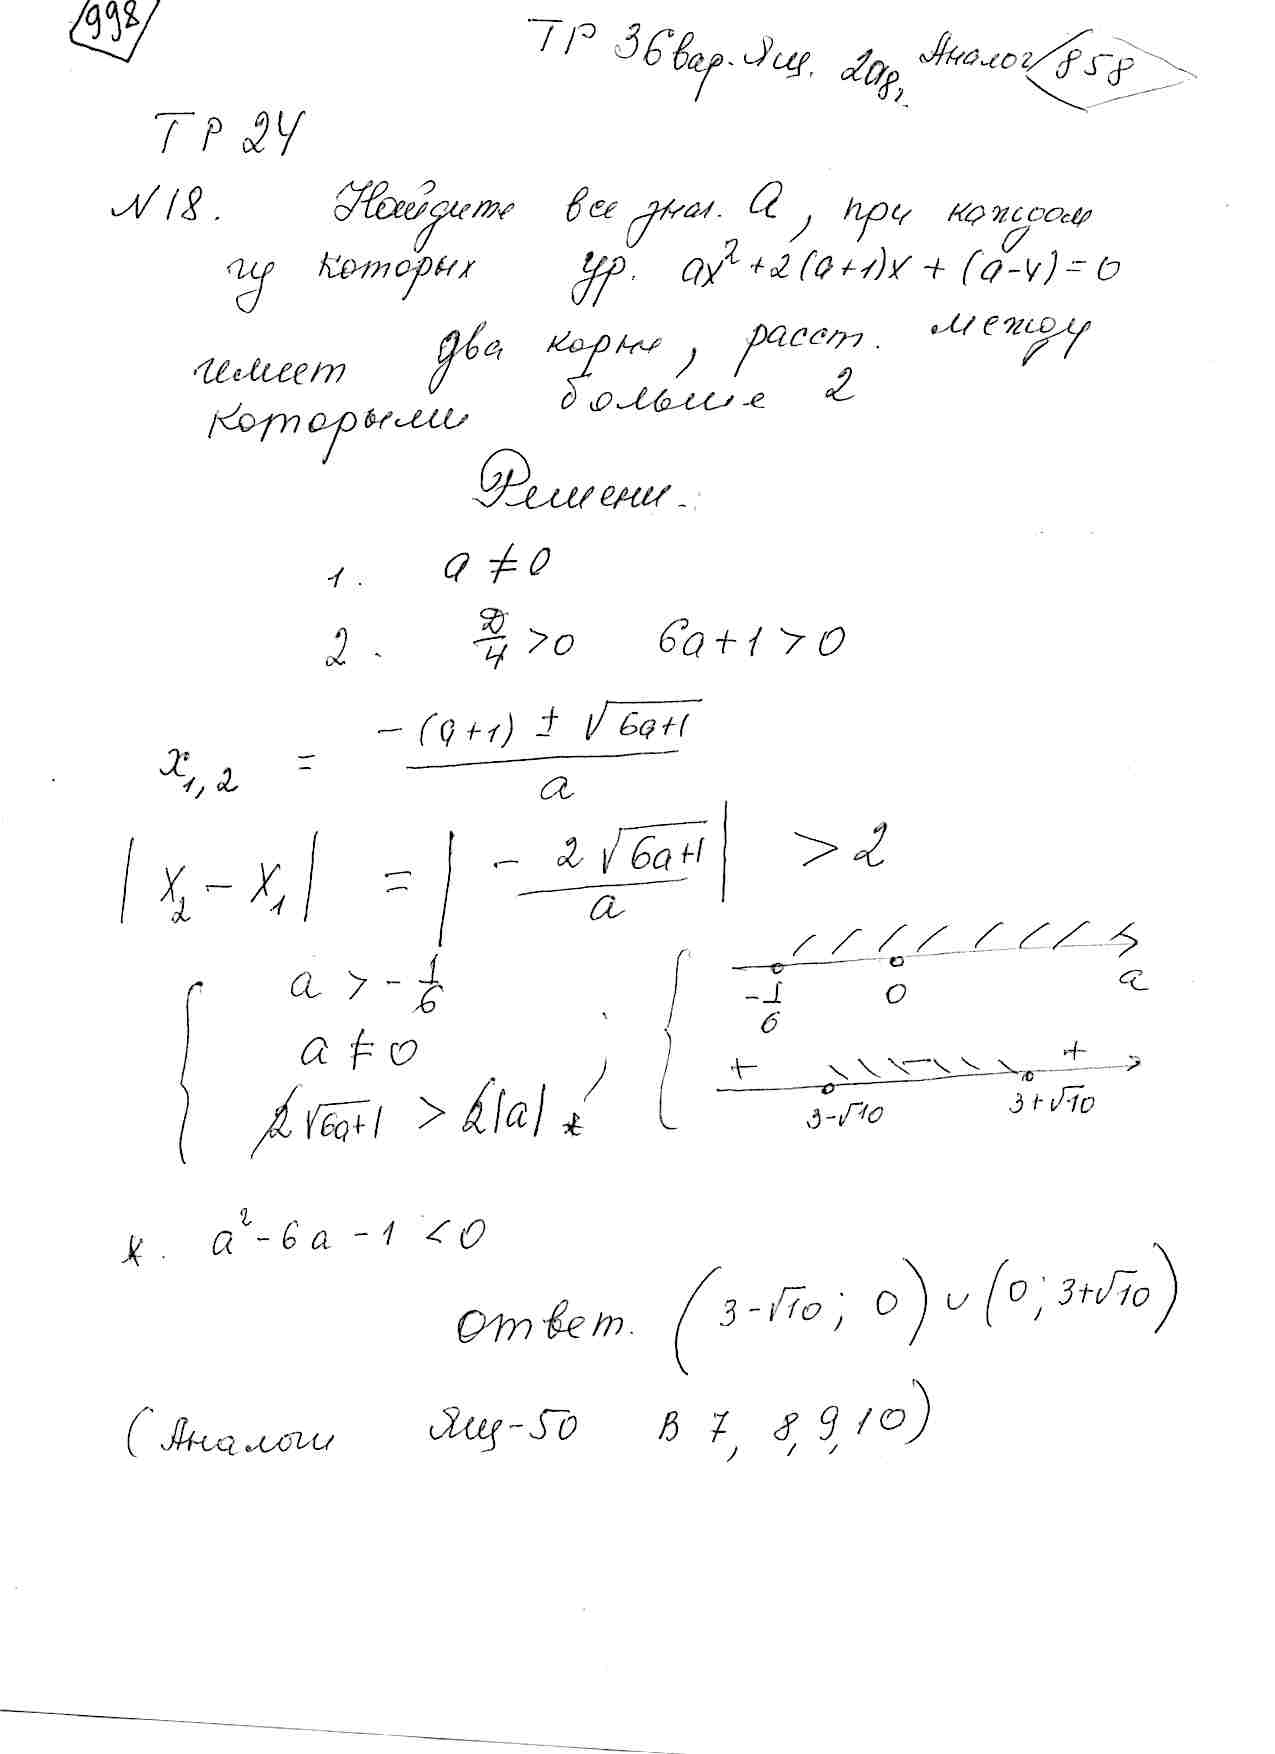 998
ТР 36 вар. Ящ. 2018г. Аналог 858
ТР 24
№ 18. Найдите все знач. a, при каждом
из которых ур. ax² + 2(a+1)x + (a-4) = 0
имеет два корня, расст. между
которыми больше 2
Решени.
1. a ≠ 0
2. Д/4 > 0 6a + 1 > 0
x₁,₂ = (-(a+1) ± √(6a+1))/a
|x₂ - x₁| = |- 2√(6a+1)/a| > 2
a > -1/6
a ≠ 0
2√(6a+1) > 2|a| *
-1/6 0 a
+ +
3-√10 3+√10
*. a² - 6a - 1 < 0
Ответ. (3-√10; 0) ∪ (0; 3+√10)
(Аналоги Ящ-50 В 7, 8, 9, 10)